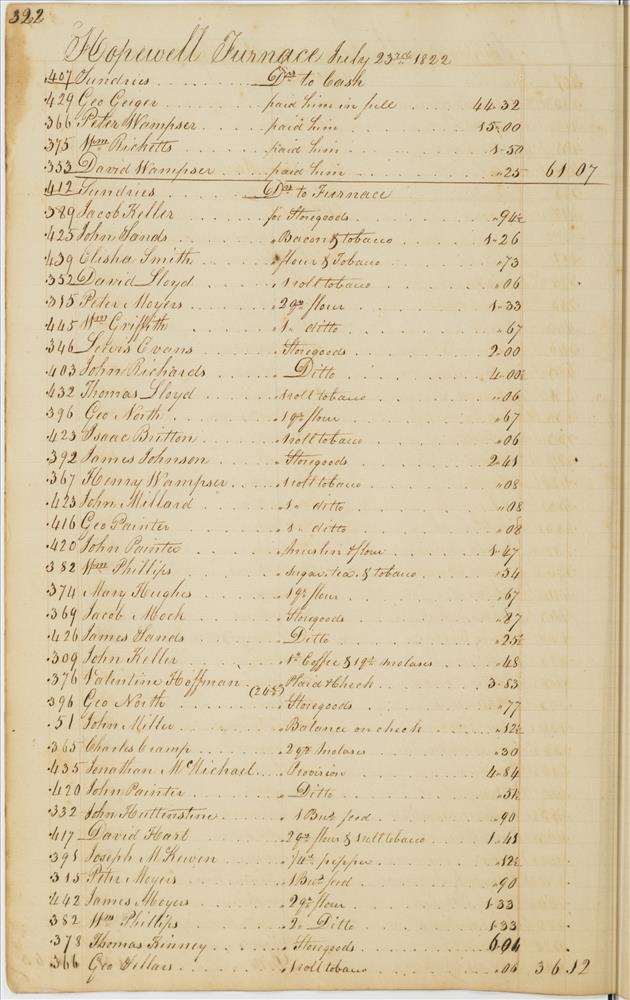 322
Hopewell Furnace July 23rd 1822
407 Sundries Drs to Cash
429 Geo Geiger paid him in full 44.32
366 Peter Wampser paid him 15.00
375 Wm Ricketts paid him 1.50
353 David Wampser paid him "25 61 07
412 Sundries Drs to Furnace
389 Jacob Keller for Storegoods "94½
425 John Sands " Bacon & tobacco 1.26
439 Elisha Smith " flour & Tobacco "73
352 David Lloyd " 1 roll tobacco "06
315 Peter Moyers " 2 qrs flour 1.33
445 Wm Griffith " 1 " ditto "67
346 Lewis Evans " Storegoods 2.00
403 John Richards " Ditto 4.00½
432 Thomas Lloyd " 1 roll tobacco "06
396 Geo North " 1 qr flour "67
423 Isaac Britton " 1 roll tobacco "06
392 James Johnson " Storegoods 2.41
367 Henry Wampser " 1 roll tobacco "08
423 John Millard " 1 " ditto "08
416 Geo Painter " 1 " ditto "08
420 John Painter " muslin & flour 1.47
382 Wm Phillips " sugar, tea, & tobacco "34
374 Mary Hughes " 1 qr flour "67
369 Jacob Mock " Storegoods "87
426 James Sands " Ditto "25½
309 John Keller " 1 lb Coffee & 1 qt molases "48
376 Valentine Hoffman " Plaid & Check 3.83
396 Geo North " Storegoods "77
51 John Miller " Balance on check "12½
365 Charles Cramp " 2 qts molases "30
435 Jonathan McMichael " Provision 4.84
420 John Painter " Ditto "51½
332 John Huttenstine " 1 Bus. feed "90
417 David Hart " 2 qrs flour & 1 roll tobacco 1.41
391 Joseph McKewen " ¼ lb pepper "12½
315 Peter Moyers " 1 Bus. feed "90
442 James Moyers " 2 qrs flour 1.33
382 Wm Phillips " 2 " Ditto 1.33
378 Thomas Kinney " Storegoods 6.04
366 Geo Sellars " 1 roll tobacco "06 36.12